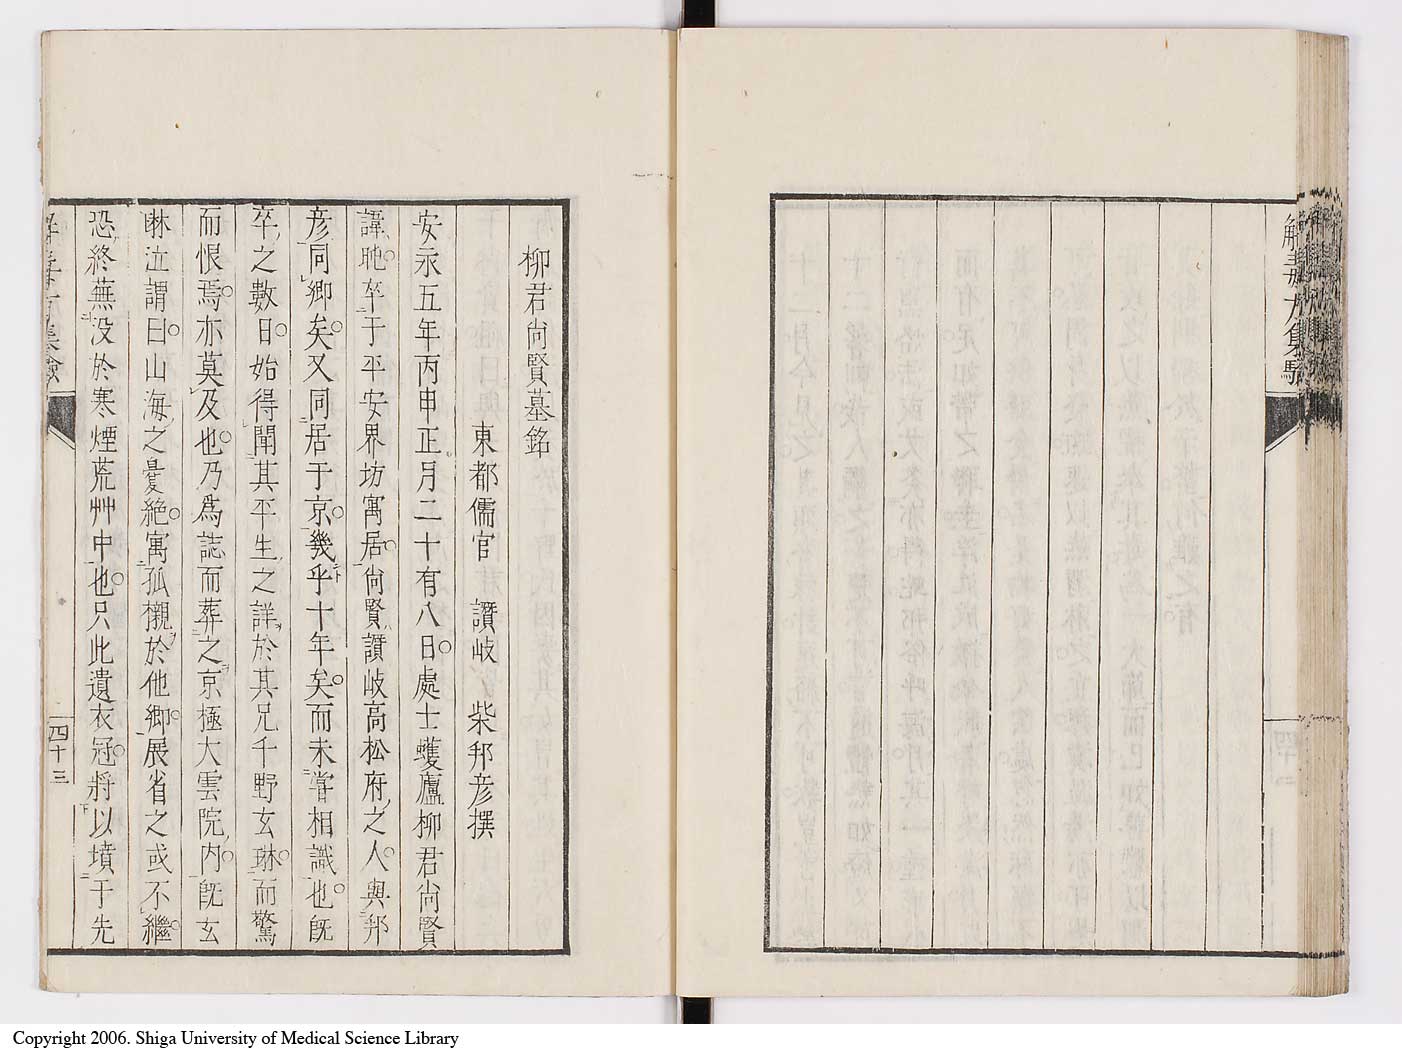 解毒方集驗
柳君尚賢墓銘
東都儒官　讚岐　柴邦彦撰
安永五年丙申正月二十有八日處士蠖廬柳君尚賢
諱䏧卒于平安界坊寓居尚賢讚岐高松府之人與邦
彦同鄉矣又同居于京幾乎十年矣而未嘗相識也既
卒之數日始得聞其平生之詳於其兄千野玄琳而驚
而恨焉亦莫及也乃爲誌而葬之京極大雲院内既玄
琳泣謂曰山海之憂絶寓孤櫬於他鄉展省之或不繼
恐終蕪没於寒煙荒艸中也只此遺衣冠將以墳于先
四十三
Copyright 2006. Shiga University of Medical Science Library